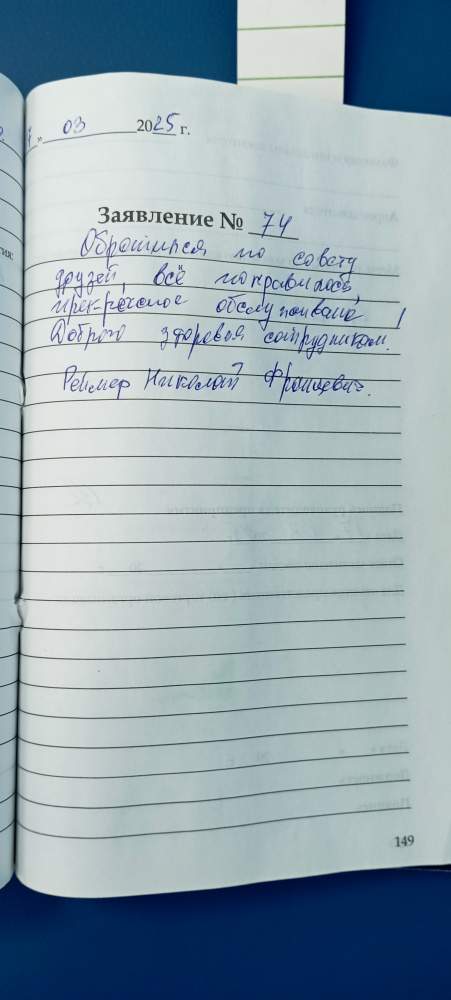 » 03 2025 г.
Заявление № 74
Обратился по совету
друзей, всё понравилось,
прекрасное обслуживание!
Доброго здоровья сотрудникам.
Реймер Николай Францевич.
149